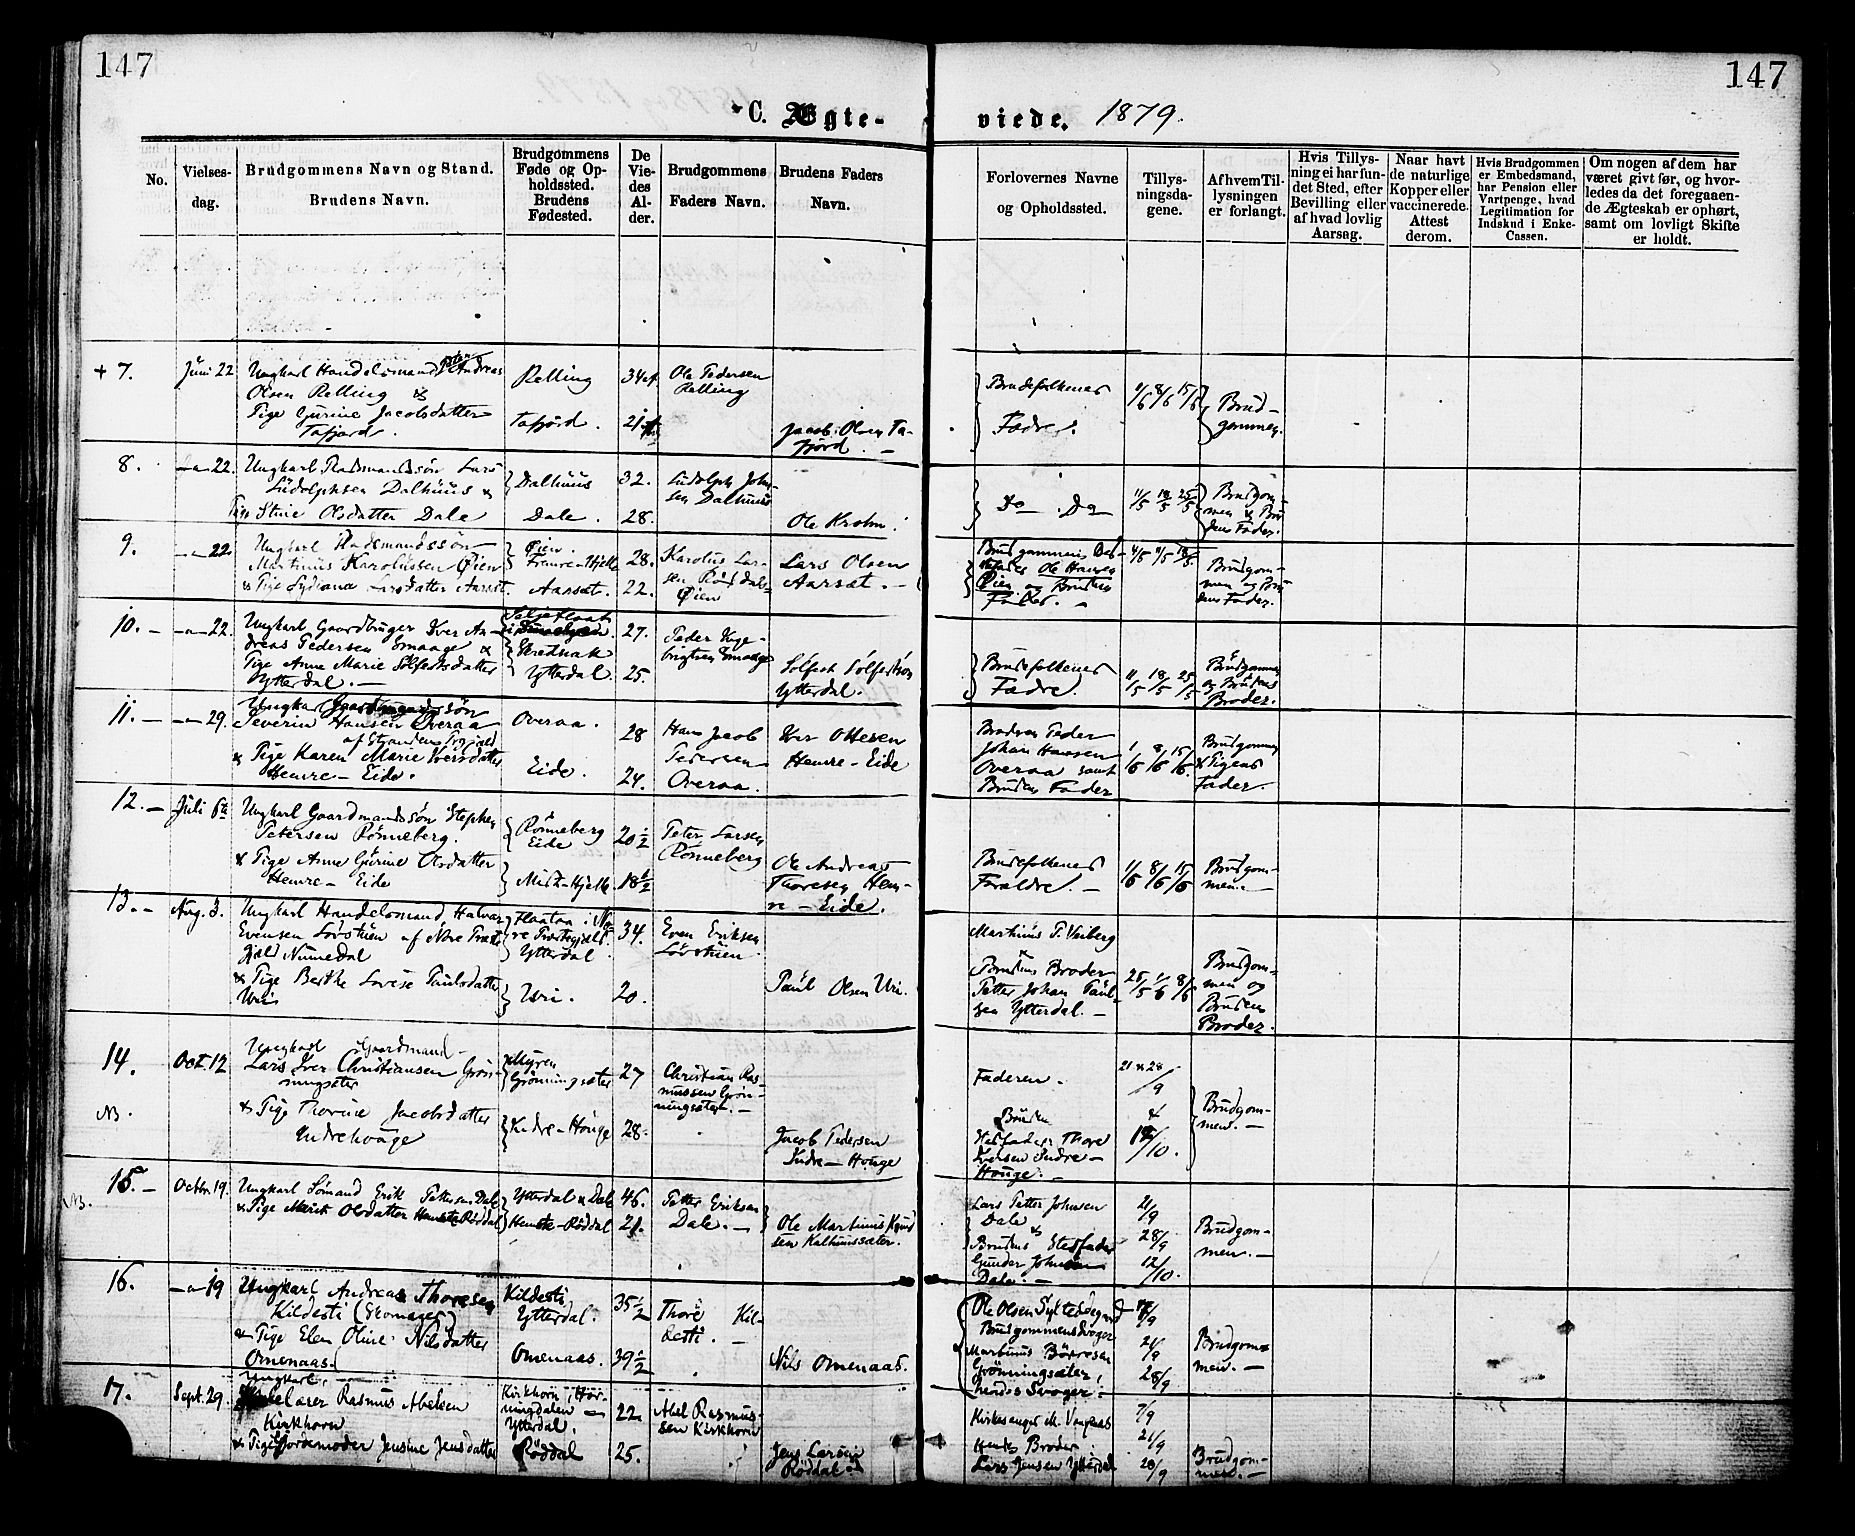 147
147
C. Ægte-
viede. 1879.
No.
Vielses-
dag.
Brudgommens Navn og Stand.
Brudens Navn.
Brudgommens
Føde og Op-
holdssted.
Brudens
Fødested.
De
Vie-
des
Al-
der.
Brudgommens
Faders Navn.
Brudens Faders
Navn.
Forlovernes Navne
og Opholdssted.
Tillys-
ningsda-
gene.
Af hvem Til-
lysningen
er forlangt.
Hvis Tillys-
ning ei har fun-
det Sted, efter
Bevilling eller
af hvad lovlig
Aarsag.
Naar havt
de naturlige
Kopper eller
vaccinerede.
Attest
derom.
Hvis Brudgommen
er Embedsmand,
har Pension eller
Vartpenge, hvad
Legitimation for
Indskud i Enke-
Cassen.
Om nogen af dem har
været givt før, og hvor-
ledes da det foregaaen-
de Ægteskab er ophørt,
samt om lovligt Skifte
er holdt.
+ 7.
Juni 22
Ungkarl Handelsmand Andreas
Olsen Relling &
Pige Gurine Jacobsdatter
Tafjord.
Relling
Tafjord.
34
21
Ole Pedersen
Relling
Jacob Olsen Ta-
fjord.
Brudefolkenes
Fædre.
11/6 8/6 15/6
Brud-
gommen.
8.
22.
Ungkarl Lars
Ludolphsen Dalhuus &
Pige Stine Olsdatter Dale
Dalhuus
Dale.
32.
28.
Ludolph John-
sen Dalhuus
Ole Krohn.
Do Do
11/5 18/5 25/5
Brudgom-
men & Bru-
dens Fader.
9.
22.
Ungkarl
Martinus Karolussen Øien
& Pige Lydiana Larsdatter Aarset.
Øien.
Aarset.
28.
22.
Karolus Lar-
sen
Øien
Lars Olsen
Aarsæt.
Brudgommens
Ole Hansen
Øien og Brudens
Fader.
4/5 11/5 18/5
Brudgom-
men og Bru-
dens Fader.
10.
22.
Ungkarl Gaardbruger Iver An-
dreas Pedersen Smaage &
Pige Anne Marie Solfestsdatter
Ytterdal.
Ytterdal
27.
25.
Peder Inge-
brigtsen Smaage
Solfest Solfestsøn
Ytterdal.
Brudefolkenes
Fædre.
11/5 18/5 25/5
Brudgommen
og Brudens
Broder.
11.
29.
Ungkarl
Severin Hansen Overaa
& Pige Karen Marie Iversdatter
Hemre-Eide.
Overaa.
Eide.
28
24.
Hans Jacob
Petersen
Overaa.
Iver Ottesen
Hemre-Eide
Peder
Johan Hansen
Overaa samt
Brudens Fader
1/6 8/6 15/6
Brudgommen
& Pigens
Fader.
12.
Juli 6te
Ungkarl Gaardmandssøn Stephen
Petersen Rønneberg.
& Pige Anne Gurine Olsdatter
Hemre-Eide
Rønneberg
Eide
20 1/2
18 1/2
Peter Larsen
Rønneberg
Ole Andreas
Thoresen Hem-
re-Eide.
Brudefolkenes
Forældre.
11/6 8/6 15/6
Brudgom-
men.
13.
Aug. 3.
Ungkarl Handelsmand Halvar
Evensen Løvstuen af Nore Præste-
gjæld Numedal
& Pige Berthe Lovise Paulsdatter
Uri
Flaataa i No-
re Præstegjæld.
Ytterdal.
Uri.
34.
20.
Even Eriksen
Løvstuen.
Paul Olsen Uri.
Martinus P. Veiberg
&
Brudens Broder
Petter Johan Paul-
sen Ytterdal.
25/5 1/6 8/6
Brudgom-
men og
Brudens
Broder.
14.
NB.
Oct. 12
Ungkarl Gaardmand
Lars Iver Christiansen Grøn-
ningsæter
& Pige Thorine Jacobsdatter
Indrehouge
Myren
Grønningsæter
Indre-Houge
27
28.
Christian Ras-
mussen Grøn-
ningsæter.
Jacob Pedersen
Indre-Houge
Faderen.
Brudens
Stedfader Thore
Iversen Indre-
Houge.
21 & 28/9
&
12/10.
Brudgom-
men.
15.
NB.
Octbr. 19.
Ungkarl Sømand Erik Pettersen Dale
& Pige Marit Olsdatter Røddal
Ytterdal & Dale
Røddal
46.
21.
Petter Eriksen
Dale.
Ole Martinus Knud
sen Kalhussæter.
Lars Petter Johnsen
Dale
&
Brudens Stedfader
Gunder Johnsen
Dale.
21/9
28/9
12/10.
Brudgom-
men.
16.
19
Ungkarl Andreas Thoresen
Kildesti (Skomager)
& Pige Elen Oline Nilsdatter
Omenaas.
Kildesti
Ytterdal.
Omenaas.
35 1/2
39 1/2
Thore Kil-
desti.
Nils Omenaas.
Ole Olsen Syltesdegaard
Brudgommens Svoger
& Martinus Børresen
Grønningsæter,
hendes Svoger.
21/9
28/9
Brudgom-
men.
17.
Sept. 29.
Ungkarl,
Rasmus Abelsen
Kirkhorn
& Pige Jordemoder Jensine Jensdatter
Kirkhorn i Hør-
ningdalen
Ytterdal.
Røddal
22.
25.
Abel Rasmus-
sen Kirkhorn
Jens Larsen
Røddal
Kirkesanger M.
Hendes Broder
Lars Jensen Ytterdal
7/9
21/9
28/9
Brudgom-
men.